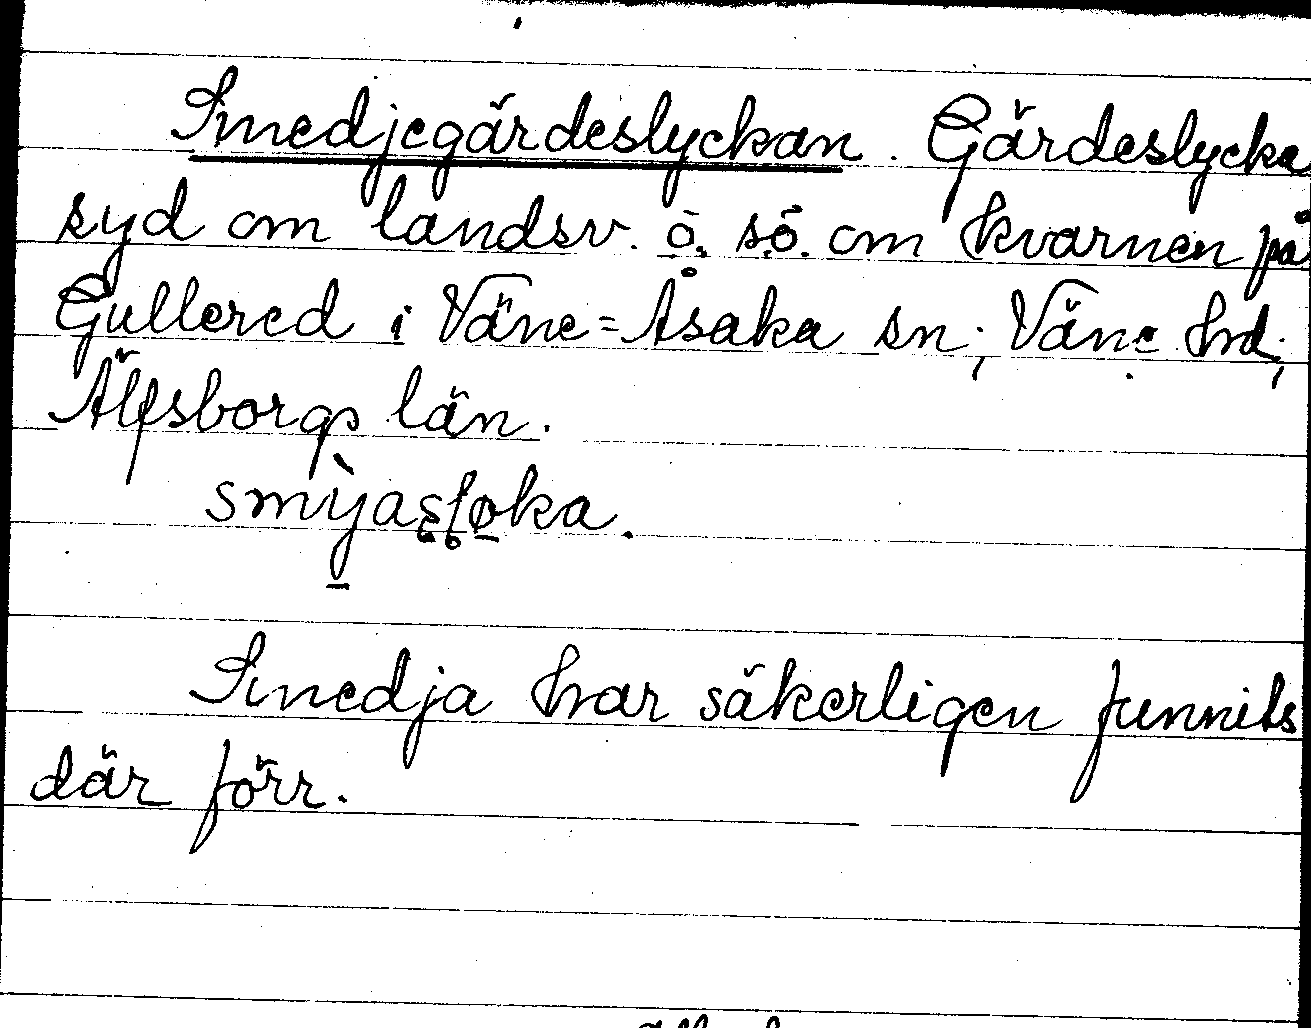 Smedjegärdeslyckan. Gärdeslycka
syd om landsv. ö. sö. om kvarnen på
Gullered i Väne=Åsaka sn; Väne hrd;
Älfsborgs län.
smỳjasḷøka.
Smedja har säkerligen funnits
där förr.